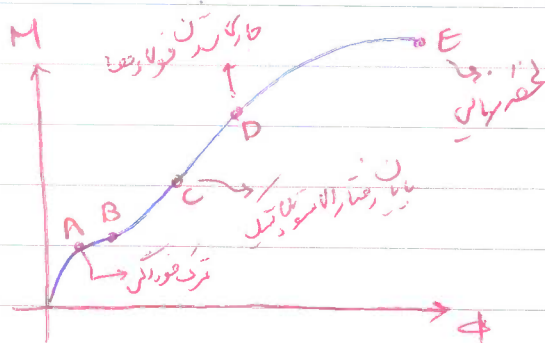 M
جاری شدن
فولادها
E
نهایی
D
C
پایان رفتار الاستوپلاستیک
A B
ترک خوردگی
ϕ